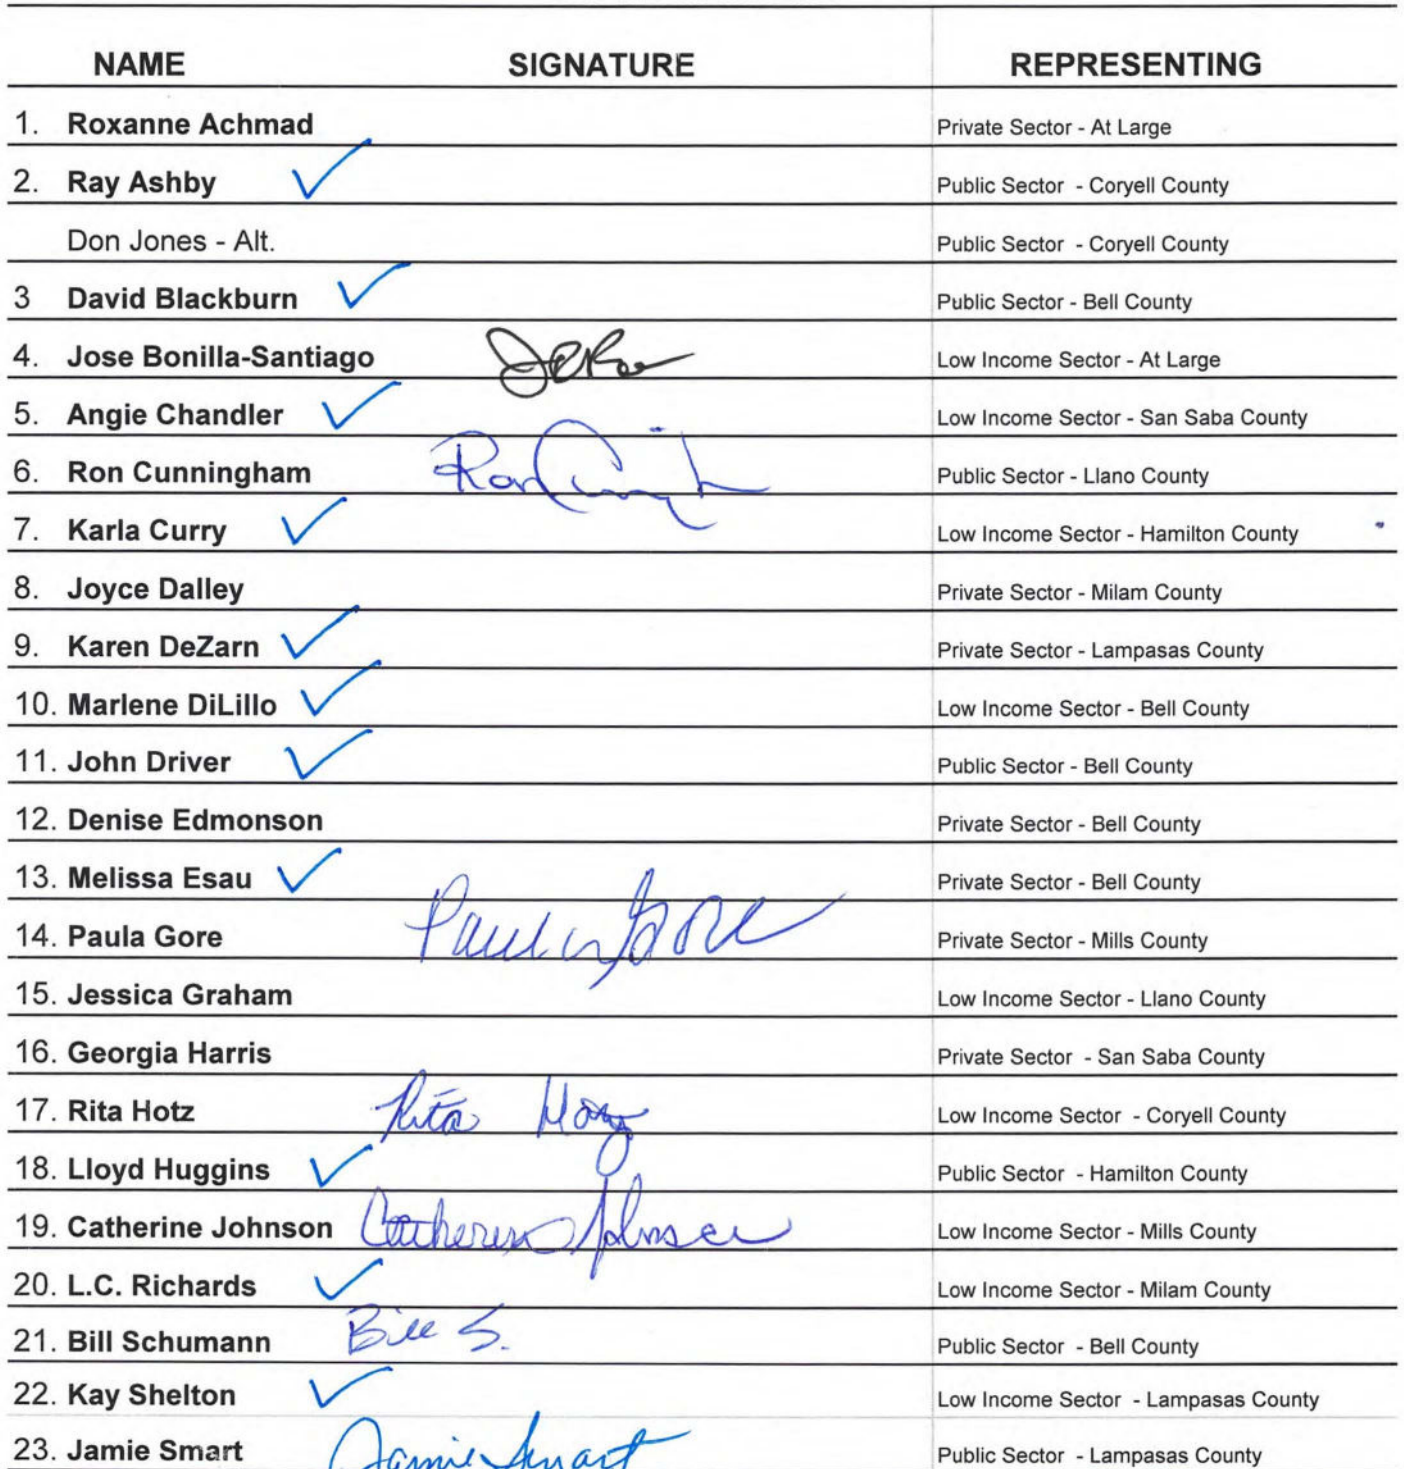 NAME SIGNATURE REPRESENTING
1. Roxanne Achmad Private Sector - At Large
2. Ray Ashby Public Sector - Coryell County
Don Jones - Alt. Public Sector - Coryell County
3 David Blackburn Public Sector - Bell County
4. Jose Bonilla-Santiago Low Income Sector - At Large
5. Angie Chandler Low Income Sector - San Saba County
6. Ron Cunningham Ron Public Sector - Llano County
7. Karla Curry Low Income Sector - Hamilton County
8. Joyce Dalley Private Sector - Milam County
9. Karen DeZarn Private Sector - Lampasas County
10. Marlene DiLillo Low Income Sector - Bell County
11. John Driver Public Sector - Bell County
12. Denise Edmonson Private Sector - Bell County
13. Melissa Esau Private Sector - Bell County
14. Paula Gore Paula Gore Private Sector - Mills County
15. Jessica Graham Low Income Sector - Llano County
16. Georgia Harris Private Sector - San Saba County
17. Rita Hotz Rita Hotz Low Income Sector - Coryell County
18. Lloyd Huggins Public Sector - Hamilton County
19. Catherine Johnson Catherine Johnson Low Income Sector - Mills County
20. L.C. Richards Low Income Sector - Milam County
21. Bill Schumann Bill S. Public Sector - Bell County
22. Kay Shelton Low Income Sector - Lampasas County
23. Jamie Smart Jamie Smart Public Sector - Lampasas County